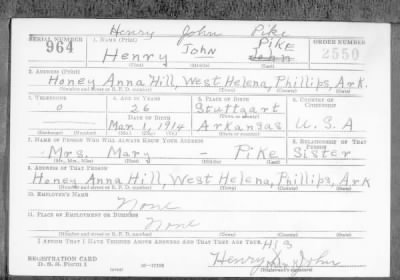 Henry John Pike
SERIAL NUMBER 1. NAME (Print) ORDER NUMBER
964 Henry John Pike John 2550
(First) (Middle) (Last)
2. ADDRESS (Print)
Honey Anna Hill, West Helena, Phillips, Ark.
(Number and street or R. F. D. number) (Town) (County) (State)
3. TELEPHONE 4. AGE IN YEARS 5. PLACE OF BIRTH 6. COUNTRY OF CITIZENSHIP
0 26 Stuttgart
DATE OF BIRTH (Town or county)
Mar. 1, 1914 Arkansas U.S.A
(Exchange) (Number) (Mo.) (Day) (Yr.) (State or country)
7. NAME OF PERSON WHO WILL ALWAYS KNOW YOUR ADDRESS 8. RELATIONSHIP OF THAT PERSON
Mrs. Mary - Pike Sister
(Mr., Mrs., Miss) (First) (Middle) (Last)
9. ADDRESS OF THAT PERSON
Honey Anna Hill, West Helena, Phillips, Ark
(Number and street or R. F. D. number) (Town) (County) (State)
10. EMPLOYER'S NAME
None
11. PLACE OF EMPLOYMENT OR BUSINESS
None
(Number and street or R. F. D. number) (Town) (County) (State)
I AFFIRM THAT I HAVE VERIFIED ABOVE ANSWERS AND THAT THEY ARE TRUE.
His
REGISTRATION CARD Henry John
D. S. S. Form 1 (Registrant's signature)